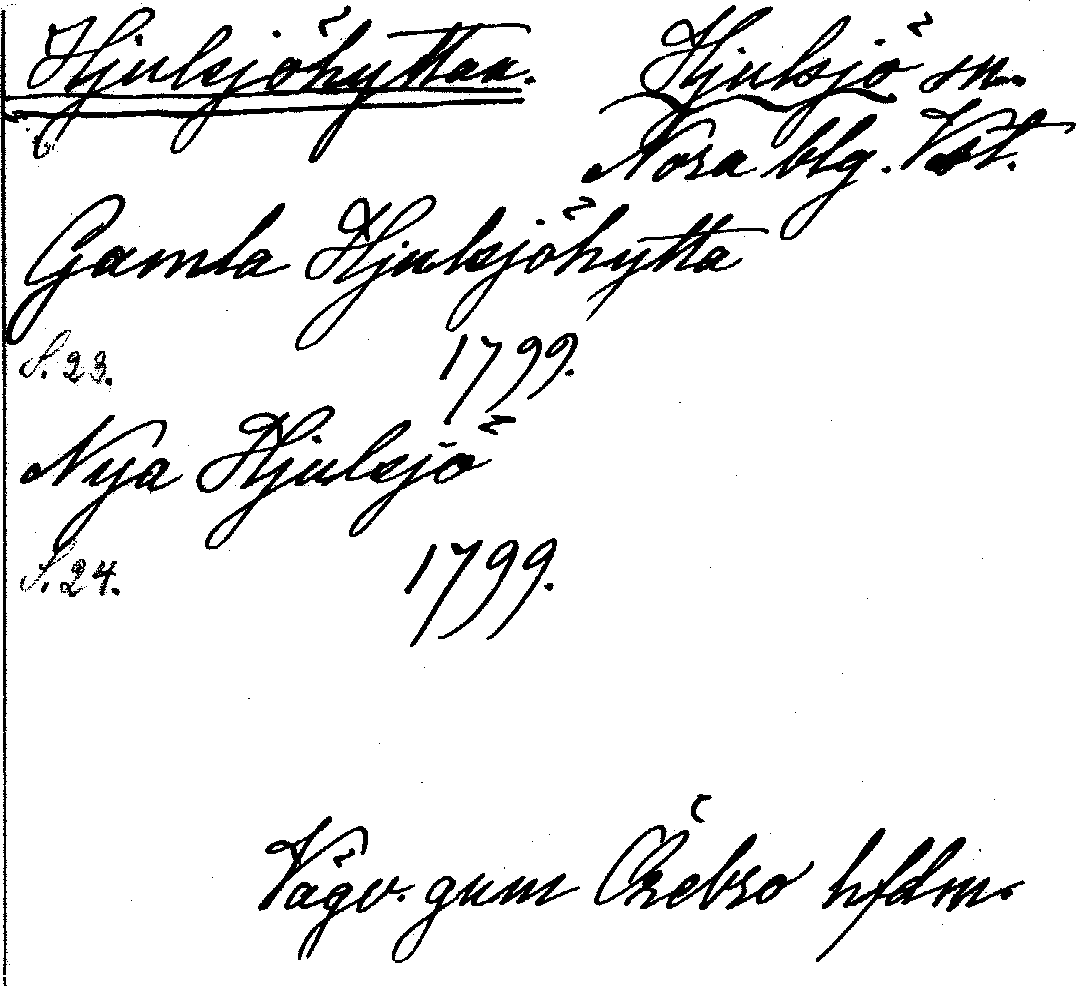 Hjulsjöhyttan. Hjulsjö sn.
Nora blg. Vstl.
Gamla Hjulsjöhytta
S. 23. 1799.
Nya Hjulsjö
S. 24. 1799.
Vägv. gnm Örebro hfdm.